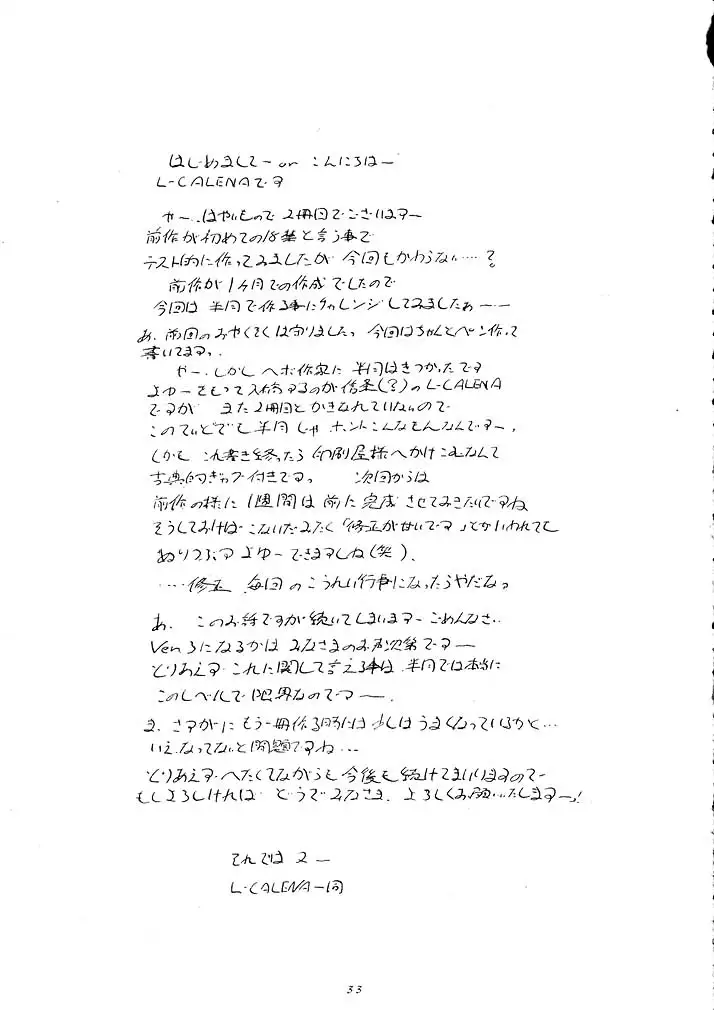 はじめましてー or こんにちはー
L-CALENAです
やー、はやいもので 2冊目でございますー
前作が初めての18禁と言う事で
テスト的に作ってみましたが 今回もかわらない……?
前作が1ヶ月での作成でしたので
今回は 半月で作る事にチャレンジしてみましたぁーー
あ、前回のみやくそくは守りました。今回はちゃんとペン作って
書いてます。
やー、しかし ヘボ作家に 半月はきつかったです
よゆーをもって入稿するのが信条(?)のL-CALENA
ですが まだ2冊目とかきなれていないので
このていどでも半月じゃ ホントこんなもんなんですー、
しかも これ書き終ったら 印刷屋様へかけこむなんて
古典的ギャグ付きです。 次回からは
前作の様に1週間は前に完成させてみきたいですね
そうしておけば こないだみたく「修正が甘いです」とかいわれても
ぬりつぶす よゆーできますしね(笑)、
……修正 毎回のこうれい行事になったらやだな。
あ、 このお話ですが続いてしまいますー ごめんなさい
Ver3になるかは みなさまのお声次第ですー
とりあえず これに関して言える事は 半月では本当に
このレベルで限界なのですー.
ま、さすがに もう一冊作る頃には 少しはうまくなっているかと…
いえ、なってないと問題ですね…
とりあえず へたくそながらも 今後も 続けてまいりますのでー
もしよろしければ どうぞ みなさま、よろしくお願いいたしますーっ!
それでは 2ー
L-CALENA一同
33